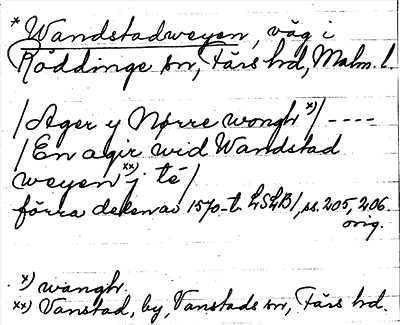 * Wandstadweyen, väg i
Röddinge sn, Färs hd, Malm. l.
/Ager y Nørre wongh x)/ ----
/En agir wid Wandstad
weyen xx) j té/
förra delen av 1570-t. LSLB/, ss. 205, 206.
orig.
x) wangh.
xx) Vanstad, by, Vanstads sn, Färs hd.